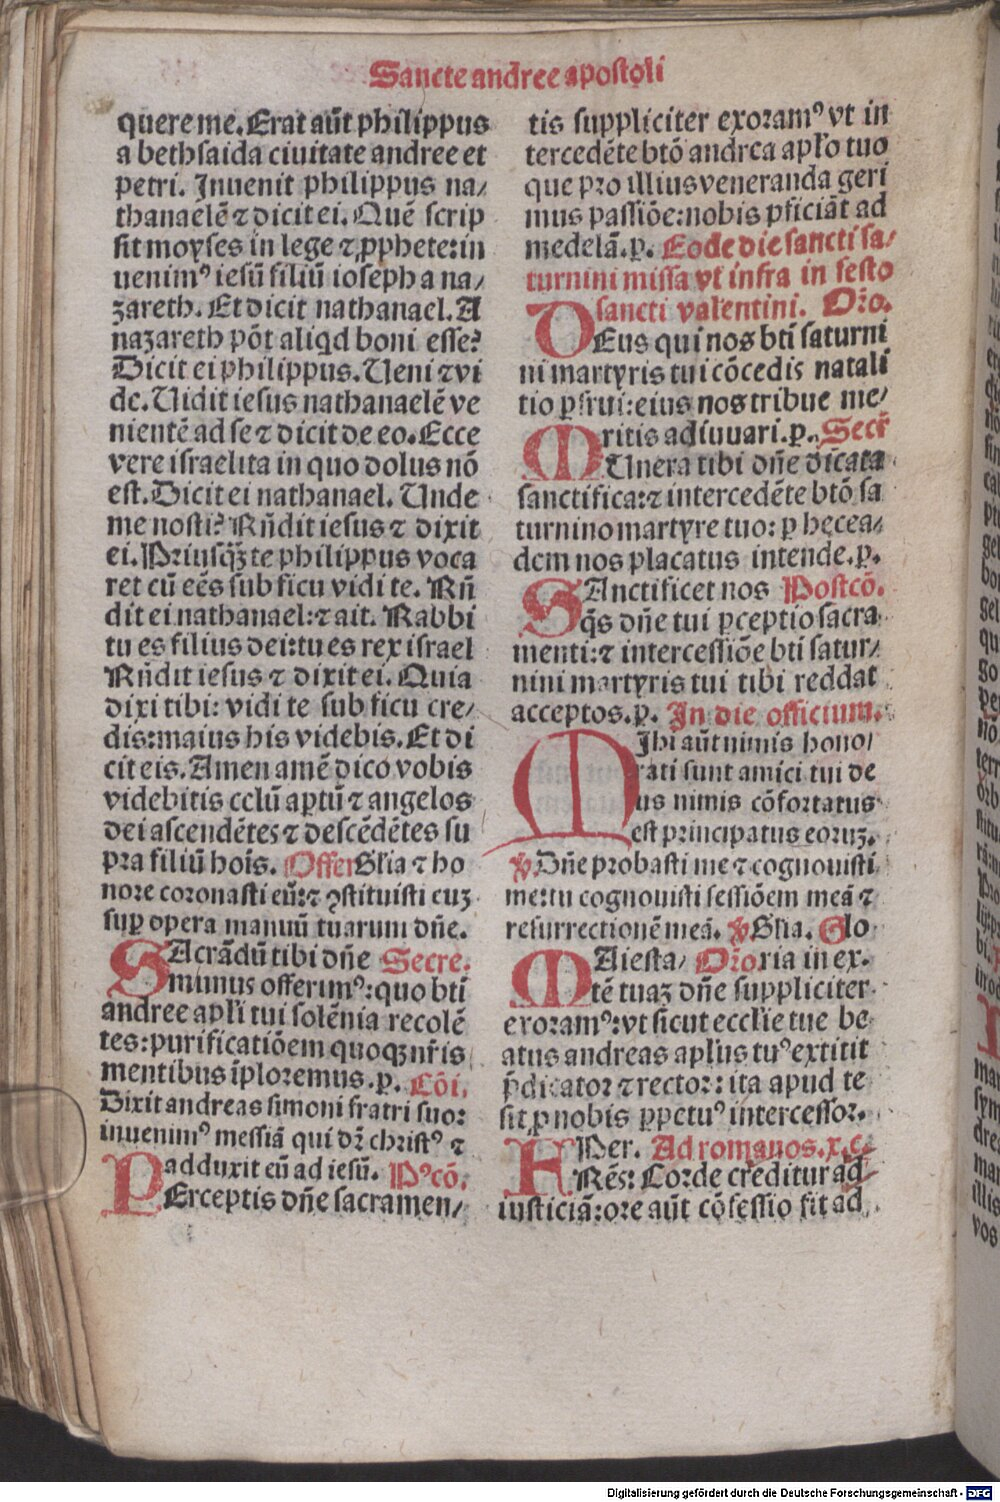 Sancte andree apostoli
quere me. Erat aūt philippus
a bethsaida ciuitate andree et
petri. Inuenit philippus na/
thanaelē ⁊ dicit ei. Quē scrip
sit moyses in lege ⁊ ꝓphete: in
uenimꝰ iesū filiū ioseph a na/
zareth. Et dicit nathanael. A
nazareth pōt aliqd boni esse?
Dicit ei philippus. Ueni ⁊ vi
de. Uidit iesus nathanaelē ve
nientē ad se ⁊ dicit de eo. Ecce
vere israelita in quo dolus nō
est. Dicit ei nathanael. Unde
me nosti? Rn̄dit iesus ⁊ dixit
ei. Priusqꝫ te philippus voca
ret cū ees̄ sub ficu vidi te. Rn̄
dit ei nathanael: ⁊ ait. Rabbi
tu es filius dei: tu es rex israel
Rn̄dit iesus ⁊ dixit ei. Quia
dixi tibi: vidi te sub ficu cre/
dis: maius his videbis. Et di
cit eis. Amen amē dico vobis
videbitis celū aꝑtū ⁊ angelos
dei ascendētes ⁊ descēdētes su
pra filiū hoīs. Offer Glīa ⁊ ho
nore coronasti eū: ⁊ ꝯstituisti euꝫ
suꝑ opera manuū tuarum dn̄e.
SAcrādū tibi dn̄e Secre.
munus offerimꝰ: quo btī
andree apl̄i tui solēnia recolē
tes: purificatiōem quoqꝫ nr̄is
mentibus īploremus. ꝑ. Cōi.
Dixit andreas simoni fratri suo:
inuenimꝰ messiā qui dr̄ christꝰ ⁊
adduxit eū ad iesū. Pꝰcō.
PErceptis dn̄e sacramen/
tis suppliciter exoramꝰ vt in
tercedēte btō andrea apl̄o tuo
que pro illius veneranda geri
mus passiōe: nobis ꝓficiāt ad
medelā. ꝑ. Eodē die sancti sa/
turnini missa vt infra in festo
sancti valentini. Or̄o.
DEus qui nos btī saturni
ni martyris tui cōcedis natali
tio ꝑfrui: eius nos tribue me/
ritis adiuuari. ꝑ. Secr̄
MUnera tibi dn̄e dicata
sanctifica: ⁊ intercedēte btō sa
turnino martyre tuo: ꝑ hec ea/
dem nos placatus intende. ꝑ.
SAnctificet nos Postcō.
qs̄ dn̄e tui ꝑceptio sacra
menti: ⁊ intercessiōe btī satur/
nini martyris tui tibi reddat
acceptos. ꝑ. In die officium.
MIhi aūt nimis hono/
rati sunt amici tui de
us nimis cōfortatus
est principatus eoruꝫ.
℣ Dn̄e probasti me ⁊ cognouisti
me: tu cognouisti sessiōem meā ⁊
resurrectionē meā. ℣ Glīa. Glo
MAiesta/ Or̄o ria in ex.
tē tuaꝫ dn̄e suppliciter
exoramꝰ: vt sicut ecclīe tue be
atus andreas apl̄us tuꝰ extitit
p̄dicator ⁊ rector: ita apud te
sit ꝓ nobis ꝑpetuꝰ intercessor.
FPer. Ad romanos. x. c.
Res̄: Corde creditur ad
iusticiā: ore aūt cōfessio fit ad
Digitalisierung gefördert durch die Deutsche Forschungsgemeinschaft - DFG